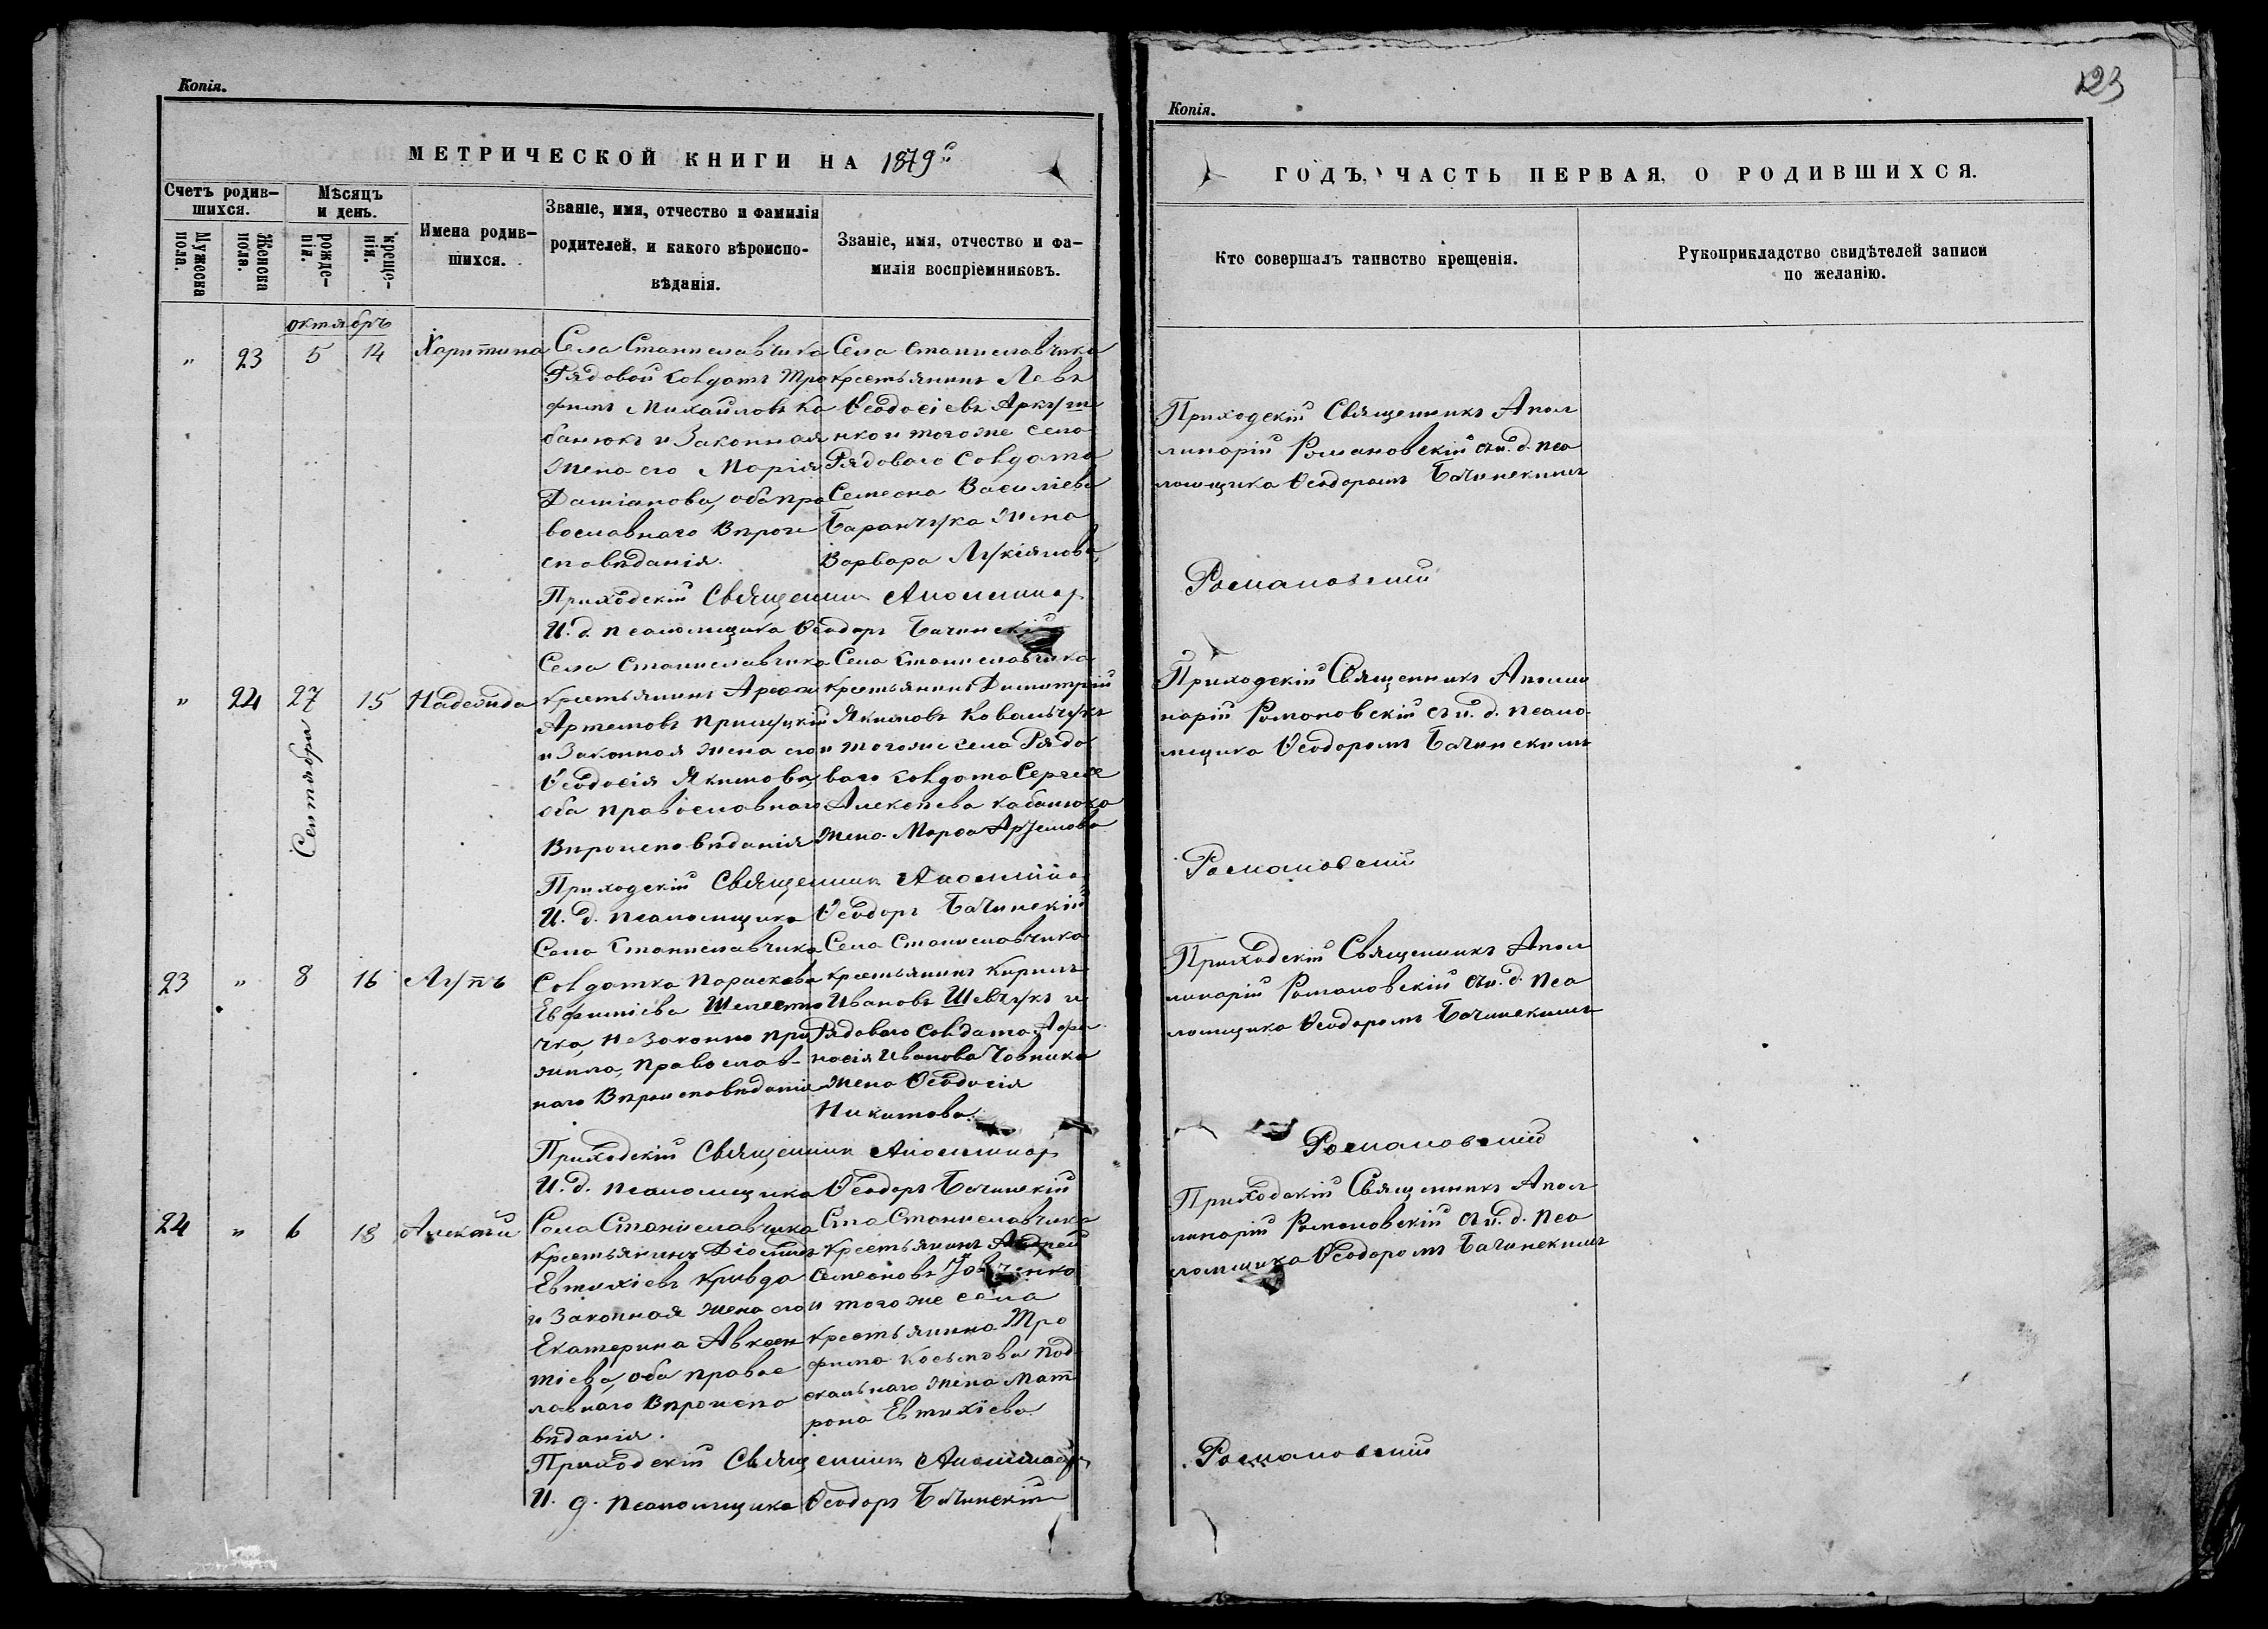 Копія.
МЕТРИЧЕСКОЙ КНИГИ НА 1879й
Счетъ родив-
шихся.
Мѣсяцъ
и день.
Мужеска
пола.
Женска
пола.
рожде-
нія.
креще-
нія.
Имена родив-
шихся.
Званіе, имя, отчество и фамилія
родителей, и какого вѣроиспо-
вѣданія.
Званіе, имя, отчество и фа-
милія воспріемниковъ.
октябръ
" 23 5 14 Харитина
Села Станиславчика
Рядовой солдатъ Тро
фимъ Михайловъ Ка
банюкъ и Законная
жена его Марія
Даміанова, оба пра
вославнаго Вѣрои
споведанія.
Села Станиславчика
крестьянинъ Левъ
Ѳеодосіевъ Аркуш
нко и того же села
Рядового Солдата
Семеона Василіева
Баранчука жена
Варвара Лукіянова,
Приходскій Священник Аполлинар
И. д. псаломщика Ѳеодоръ Бачинскій
" 24 27 15 Надежда
Сентября
Села Станиславчика
крестьянинъ
Артемовъ Прилуцкій
и Законная жена его
Ѳеодосія Якимова,
оба православнаго
Вѣроисповѣданія
Села Станиславчика
крестьянинъ Димитрій
Якимовъ Ковальчукъ
и того же села Рядо
ваго солдата Сергея
Алексѣева Кабанюка
жена Марѳа Артемова
Приходскій Священник Аполлина
И. д. псаломщика Ѳеодоръ Бачинскій
23 " 8 16 Лупъ
Села Станиславчика
Солдатка Параскева
Евфиміева Шелести
чка, незаконно при
жила, Православ-
наго Вѣроисповѣданія
Села Станиславчика
крестьянинъ Кирилъ
Ивановъ Шевчукъ и
Рядоваго Солдата Афа
насія Иванова Човника
жена Ѳеодосія
Никитова.
Приходскій Священник Аполлинар
И. д. псаломщика Ѳеодоръ Бачинскій
24 " 6 18 Алексѣй
Села Станиславчика
Крестьянинъ Діомидъ
Евтихіевъ Кривда
и Законная жена его
Екатерина Авксен
тіева, оба правос
лавнаго Вѣроиспо
вѣданія.
Села Станиславчика
Крестьянинъ Андрей
Семеоновъ
и того же села
крестьянина Тро
фима Косьмова Под
скальнаго жена Мат
рона Евтихіева
Приходскій Священник Аполлинар
И. д. псаломщика Ѳеодоръ Бачинскій
123
Копія.
ГОДЪ, ЧАСТЬ ПЕРВАЯ, О РОДИВШИХСЯ.
Кто совершалъ таинство крещенія.
Рукоприкладство свидѣтелей записи
по желанію.
Приходскій Священникъ Апол
линарій Романовскій съ и. д. пса
ломщика Ѳеодоромъ Бачинскимъ
Романовский
Приходскій Священникъ Аполли
нарій Романовскій съ и. д. псало-
мщика Ѳеодоромъ Бачинскимъ
Романовский
Приходскій Священникъ Апол
линарій Романовскій съ и. д. пса
ломщика Ѳеодоромъ Бачинскимъ
Романовский
Приходскій Священникъ Апол
линарій Романовскій съ и. д. пса
ломщика Ѳеодоромъ Бачинскимъ
Романовский